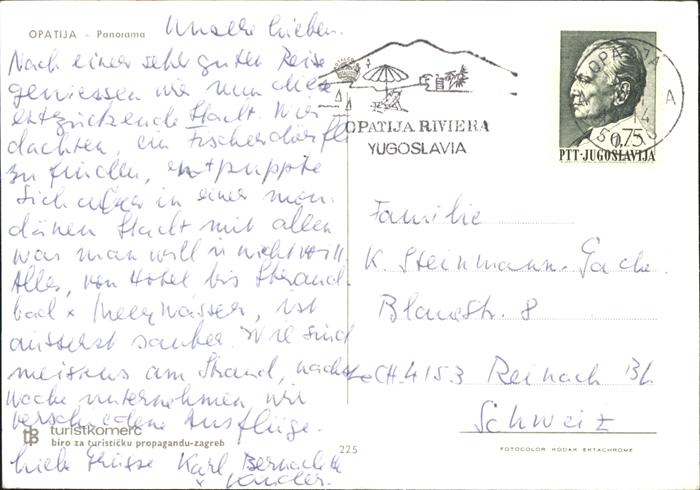 OPATIJA - Panorama
Unsere Lieben.
Nach einer sehr guten Reise
geniessen wir nun diese
entzückende Stadt. Wir
dachten, ein Fischerdörfli
zu finden, entpuppte
sich aber in einer mon-
dänen Stadt mit allem
was man will u nicht will.
Alles, von Hotel bis Strand-
bad x Meerwasser, ist
äusserst sauber. Wir sind
meistens am Strand, nächste
Woche unternehmen wir
verschiedene Ausflüge.
turistkomerc
biro za turističku propagandu-zagreb
liebe Grüsse Karl
225
OPATIJA RIVIERA
YUGOSLAVIA
OPATIJA
0,75
PTT-JUGOSLAVIJA
Familie
K. Steinmann-Gache
Blauestr. 8
CH. 4153 Reinach BL
Schweiz
FOTOCOLOR KODAK EKTACHROME